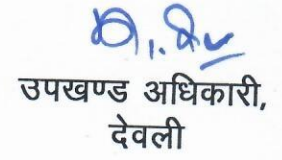 उपखण्ड अधिकारी,
देवली